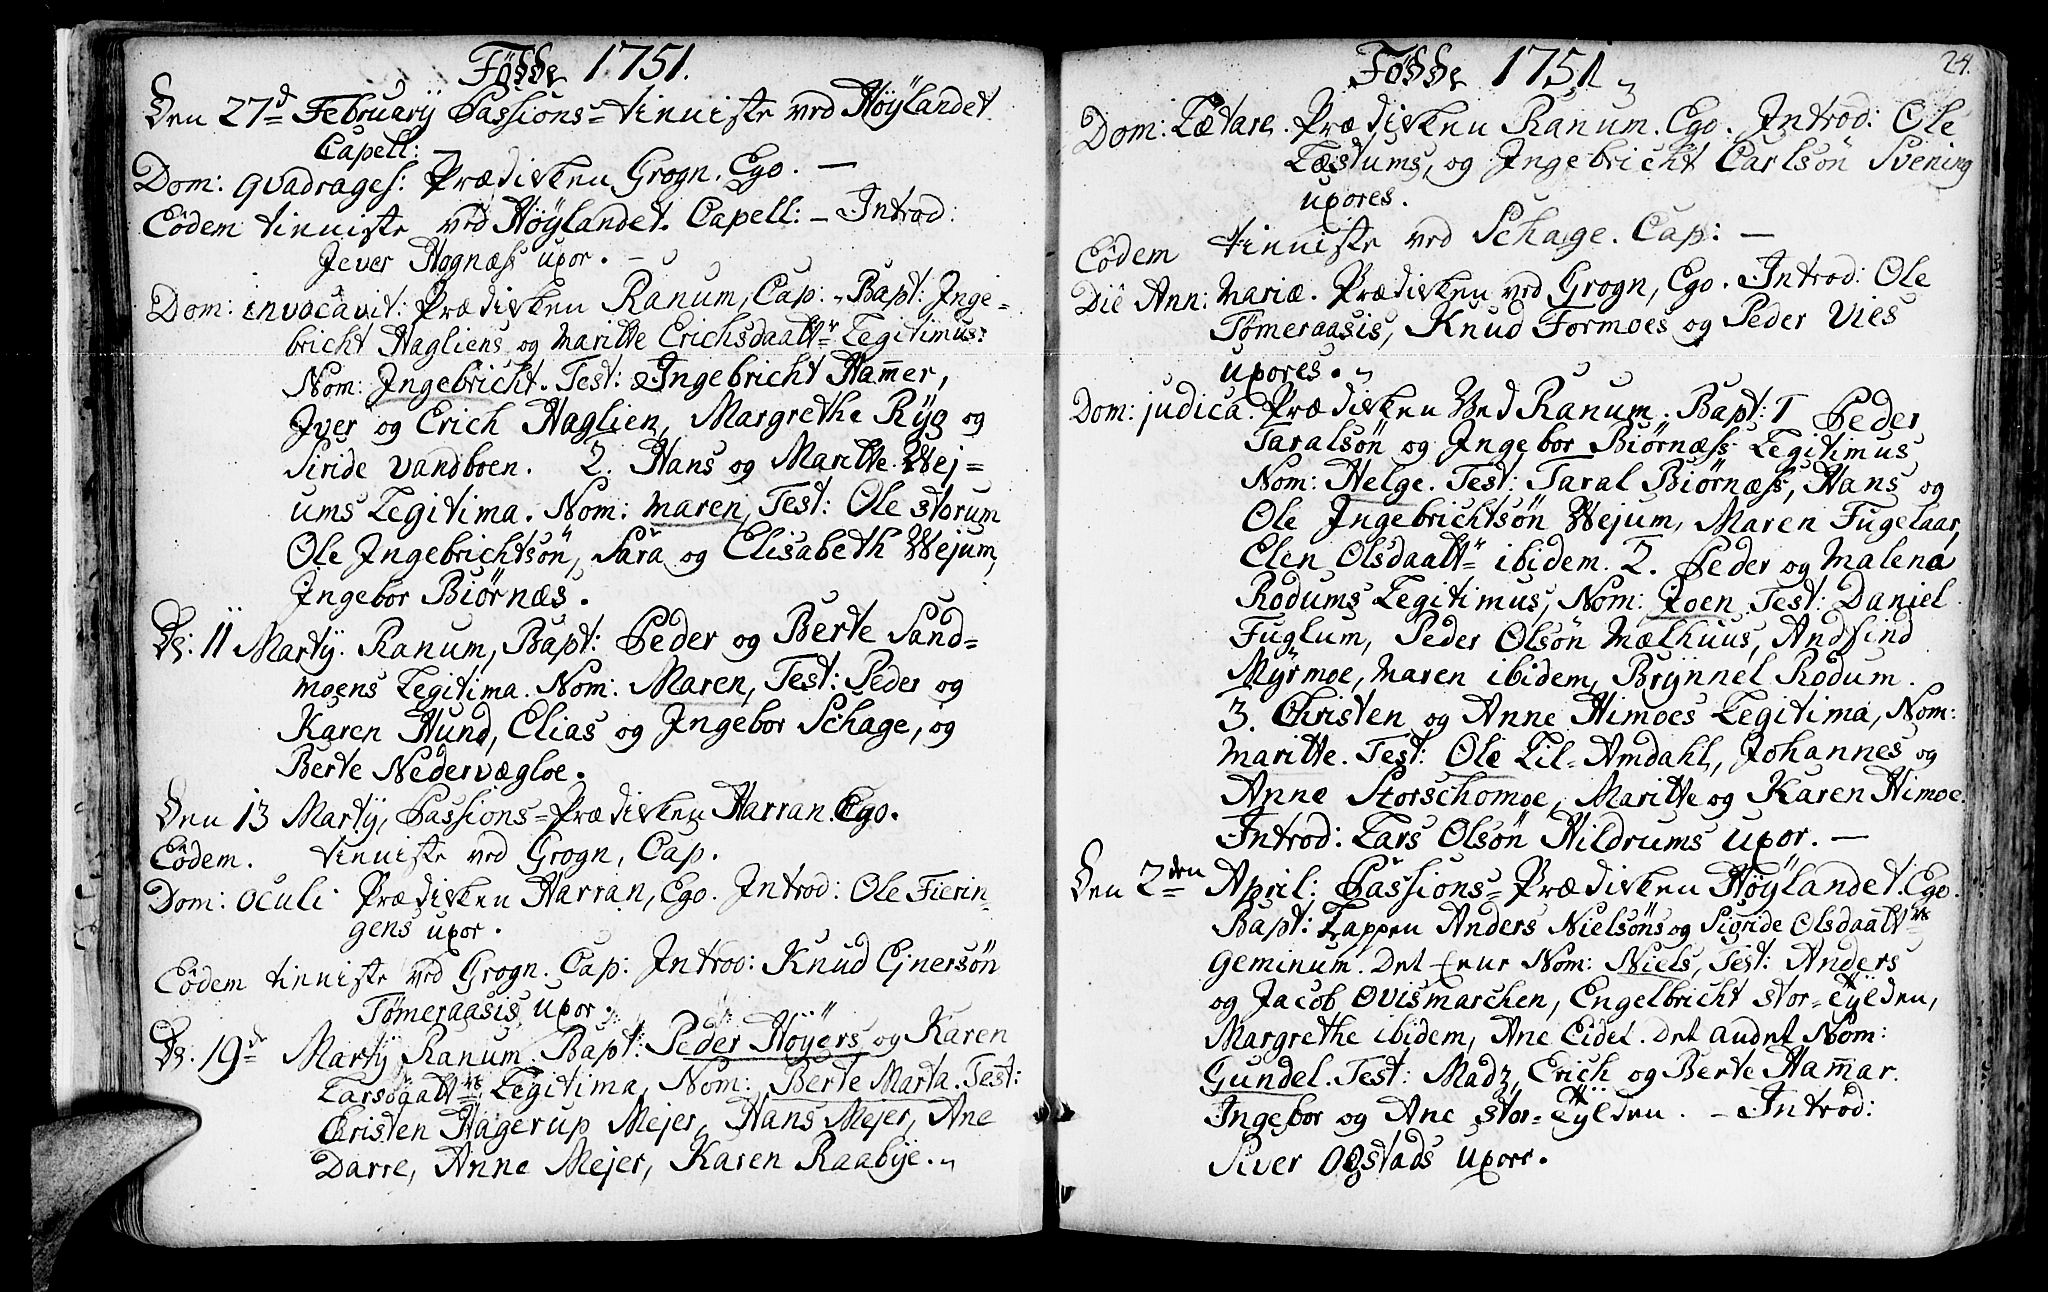 Födde 1751.
Den 27d February Passions=tienniste ved Höylandet
Capell: —
Dom: Qvadrages: Prædiken Grogn. Ego. —
Eödem tienniste ved Höylandet. Capell: — Introd:
Jever Hognæss uxor. —
Dom: invocavit: Prædiken Ranum, Cap: Bapt: Inge=
bricht Hagliens og Maritte Erichsdaattr Legitimus:
Nom: Ingebricht. Test: Ingebricht Ham̄er,
Iver og Erich Haglien, Margrethe Ryg og
Siride Vandboen. 2. Hans og Maritte Wej=
ums Legitima. Nom: Maren, Test: Ole Storum
Ole Ingebrichtsön, Sara og Elisabeth Wejum,
Ingebor Biörnæs.
D: 11 Marty. Ranum, Bapt: Peder og Berte Sand=
moens Legitima. Nom: Maren, Test: Peder og
Karen Hund, Elias og Ingebor Schage, og
Berte Nedervægloe.
Den 13 Marty, Passions=Prædiken Harran. Ego.
Eödem. tienniste ved Grogn, Cap.
Dom: Oculi Prædiken Harran, Ego. Introd: Ole Fierin=
gens uxor.
Eödem tienniste ved Grogn. Cap: Introd: Knud Ejnersön
Tömeraasis uxor.
D: 19d Marty Ranum. Bapt: Peder Höyers og Karen
Larsdaattrs Legitima, Nom: Berte Marta. Test:
Christen Hagerup Mejer, Hans Mejer, Ane
Darre, Anne Mejer, Karen Raabye.
24.
Födde 1751
Dom: Lætare. Prædiken Ranum. Ego. Introd: Ole
Læstums, og Ingebricht Carlsön Svening
uxores.
Eödem tienniste ved Schage. Cap: —
Die Ann: Mariæ. Prædiken ved Grogn, Ego. Introd: Ole
Tömeraasis, Knud Formoes og Peder Vies
uxores.
Dom: judica. Prædiken Ved Ranum. Bapt: 1 Peder
Taralsön og Ingebor Biörnæss Legitimus
Nom: Helge. Test: Taral Biörnæss, Hans og
Ole Ingebrichtsön Wejum, Maren Fugelaar,
Elen Olsdaattr ibidem. 2. Peder og Malena
Rodums Legitimus, Nom: Joen. Test: Daniel
Fuglum, Peder Olsön Mælhuus, Andfind
Myrmoe, Maren ibidem, Brynnel Rodum.
3. Christen og Anne Himoes Legitima, Nom:
Maritte. Test: Ole Lil=Amdahl, Johannes og
Anne Storschomoe, Maritte og Karen Himoe.
Introd: Lars Olsön Hildrums uxor. —
Den 2den April: Passions=Prædiken Höylandet. Ego.
Bapt: Lappen Anders Nielsöns og Sigride Olsdaattrs
Geminum. Det Nom: Niels, Test: Anders
og Jacob Ovismarchen, Engelbricht Stor=Tylden,
Margrethe ibidem, Ane Eidet. Det andet Nom:
Gundel. Test: Madz, Erich og Berte Ham̄ar.
Ingebor og Ane Stor=Tylden. — Introd:
Siver Ogstads uxor.